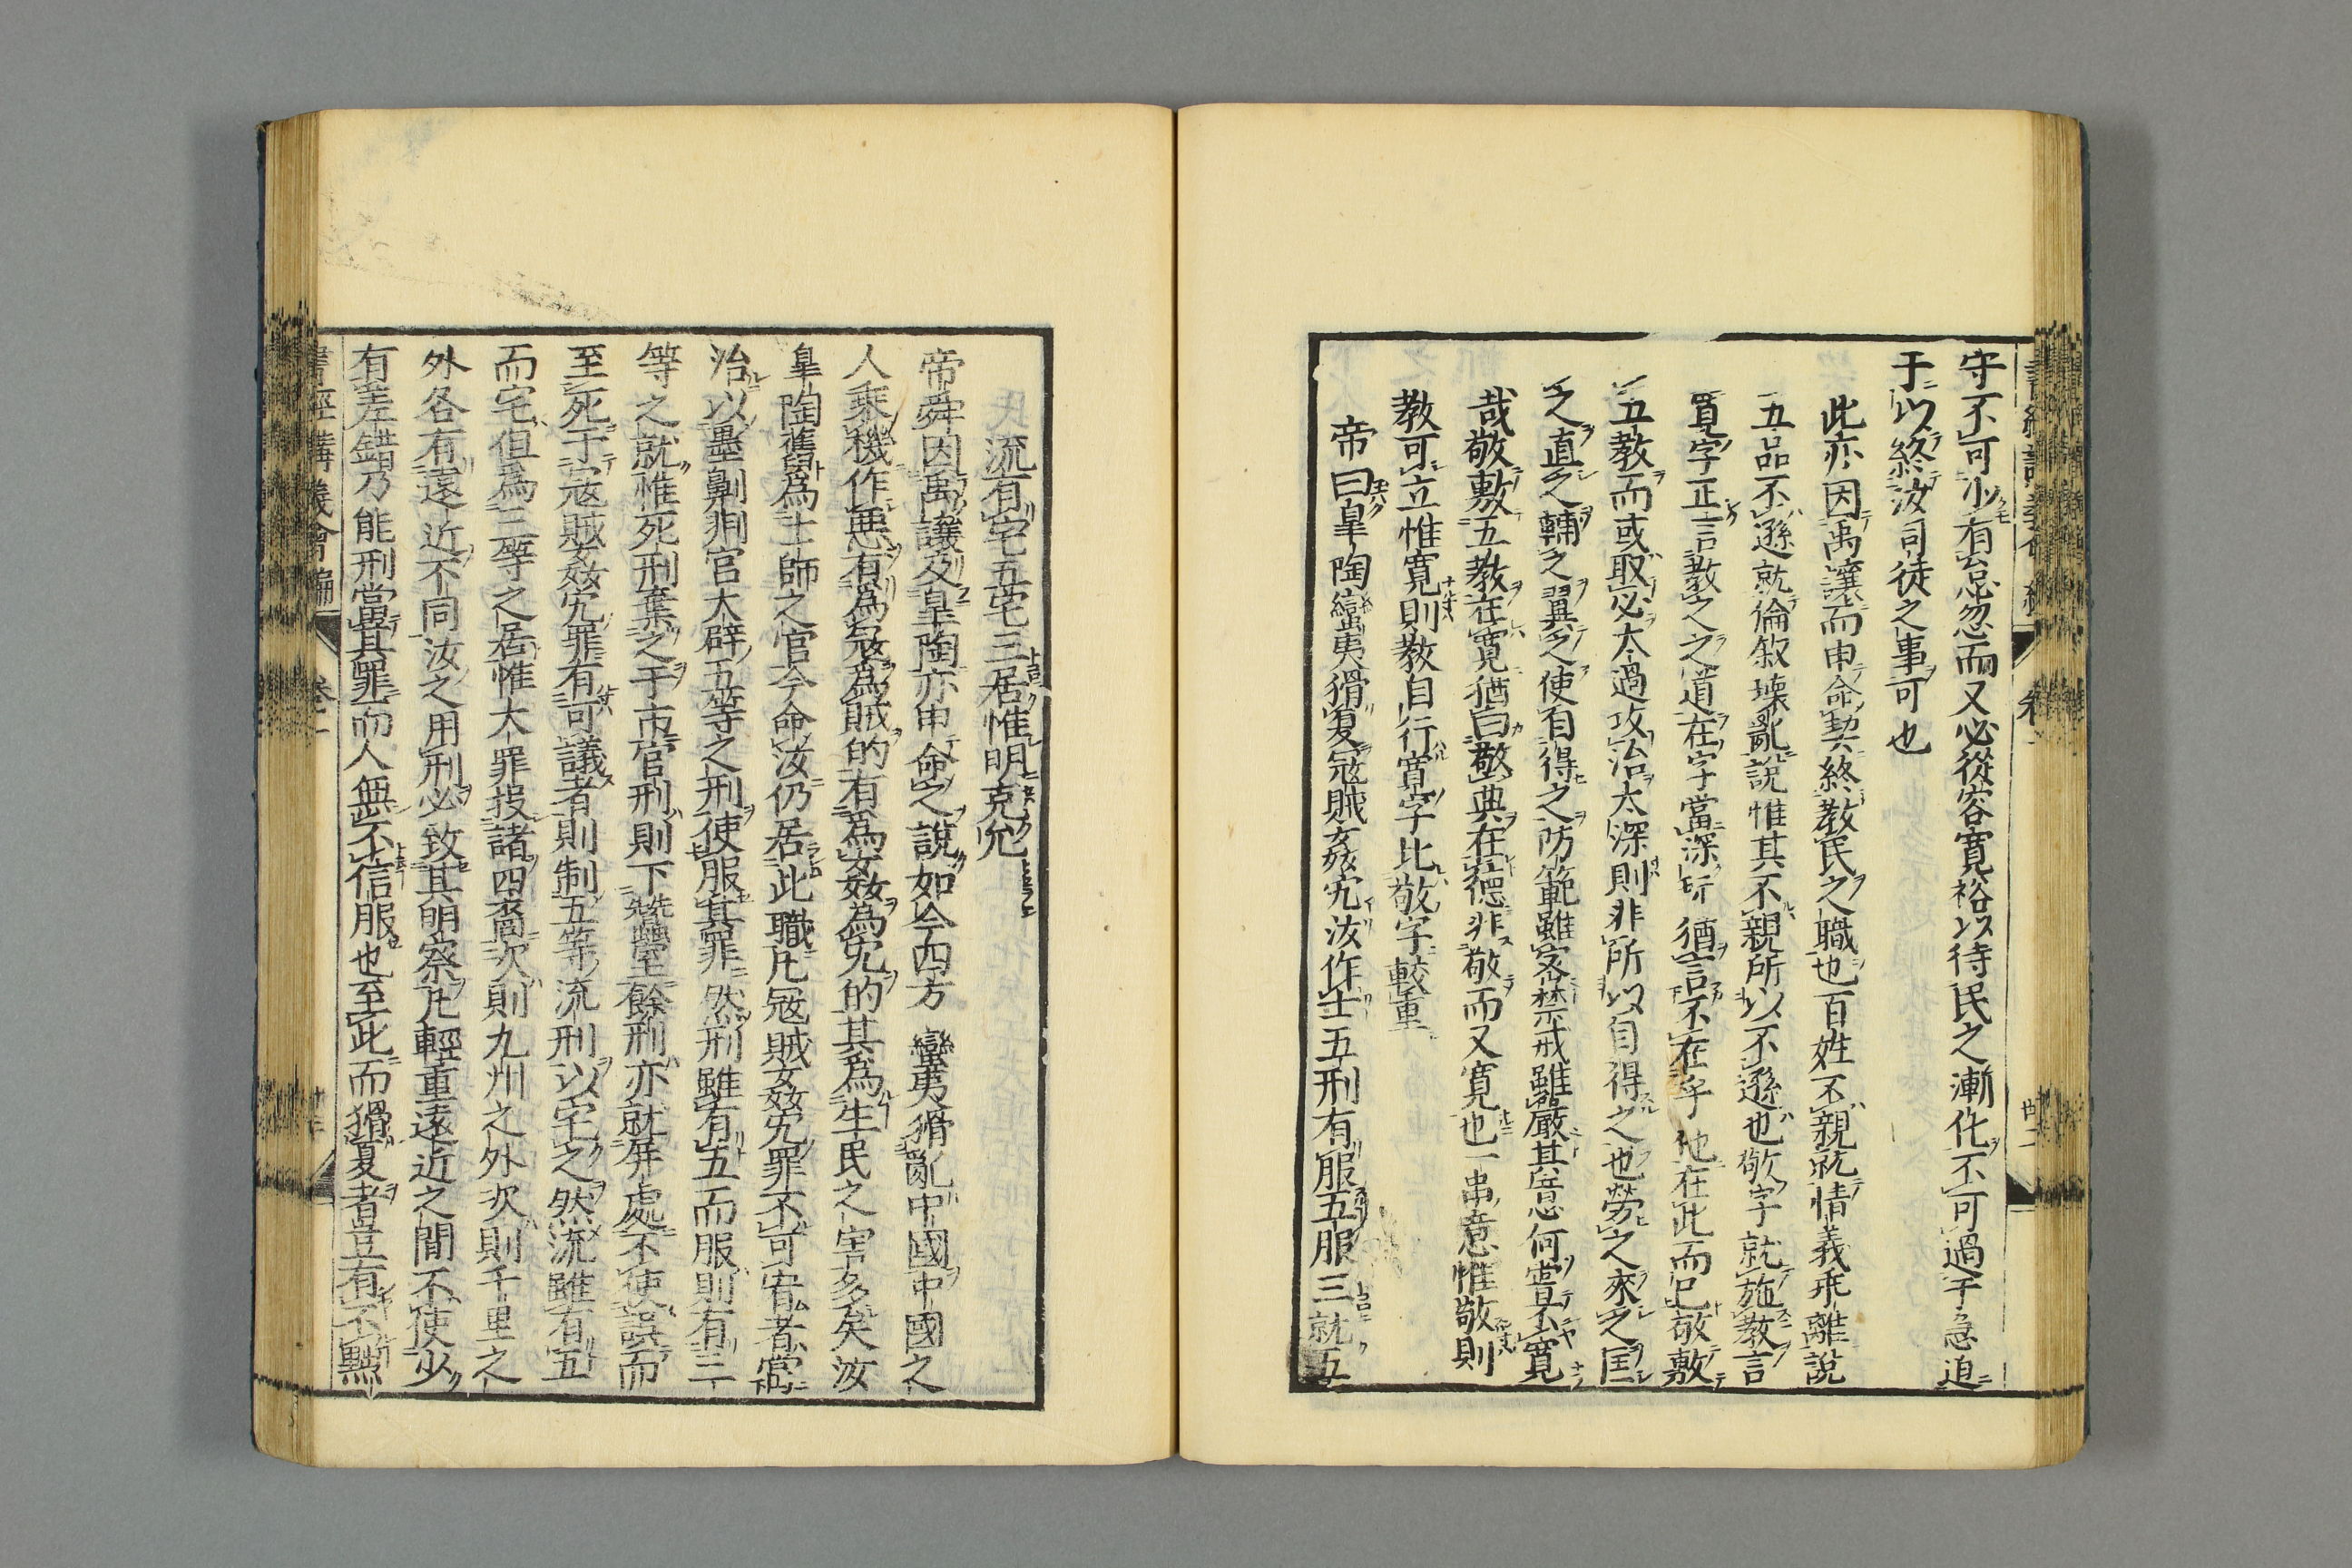 守不可少有怠忽而又必從容寬裕以待民之漸化不可過于急迫
于以終汝司徒之事可也
此亦因禹讓而申命契終教民之職也百姓不親就情義乖離說
五品不遜就倫敘壞亂說惟其不親所以不遜也敬字就施教言
寬字正言教之之道在字當深玩猶言不在乎他在此而已敬敷
五教而或取必太過攻治太深則非所以自得之也勞之來之匡
之直之輔之翼之使自得之防範雖密禁戒雖嚴其意何嘗不寬
哉敬敷五教在寬猶曰敬典在德非敬而又寬也一串意惟敬則
教可立惟寬則教自行寬字比敬字較重
帝曰皐陶蠻夷猾夏寇賊姦宄汝作士五刑有服五服三就五
流有宅五宅三居惟明克允
帝舜因禹讓及皐陶亦申命之說如今四方蠻夷猾亂中國中國之
人乘機作惡有為寇為賊的有為姦為宄的其為生民之害多矣汝
皐陶舊為士師之官今命汝仍居此職凡寇賊姦宄罪不可宥者當
治以墨劓剕宮大辟五等之刑使服其罪然刑雖有五而服則有三
等之就惟死刑棄之于市宮刑則下蠶室餘刑亦就屏處不使誤而
至死于寇賊姦宄罪有可議者則制五等流刑以宅之然流雖有五
而宅但為三等之居惟大罪投諸四裔次則九州之外次則千里之
外各有遠近不同汝之用刑必致其明察凡輕重遠近之間不使少
有差錯乃能刑當其罪而人無不信服也至此而猾夏者豈有不黙
書經講義會編 卷一